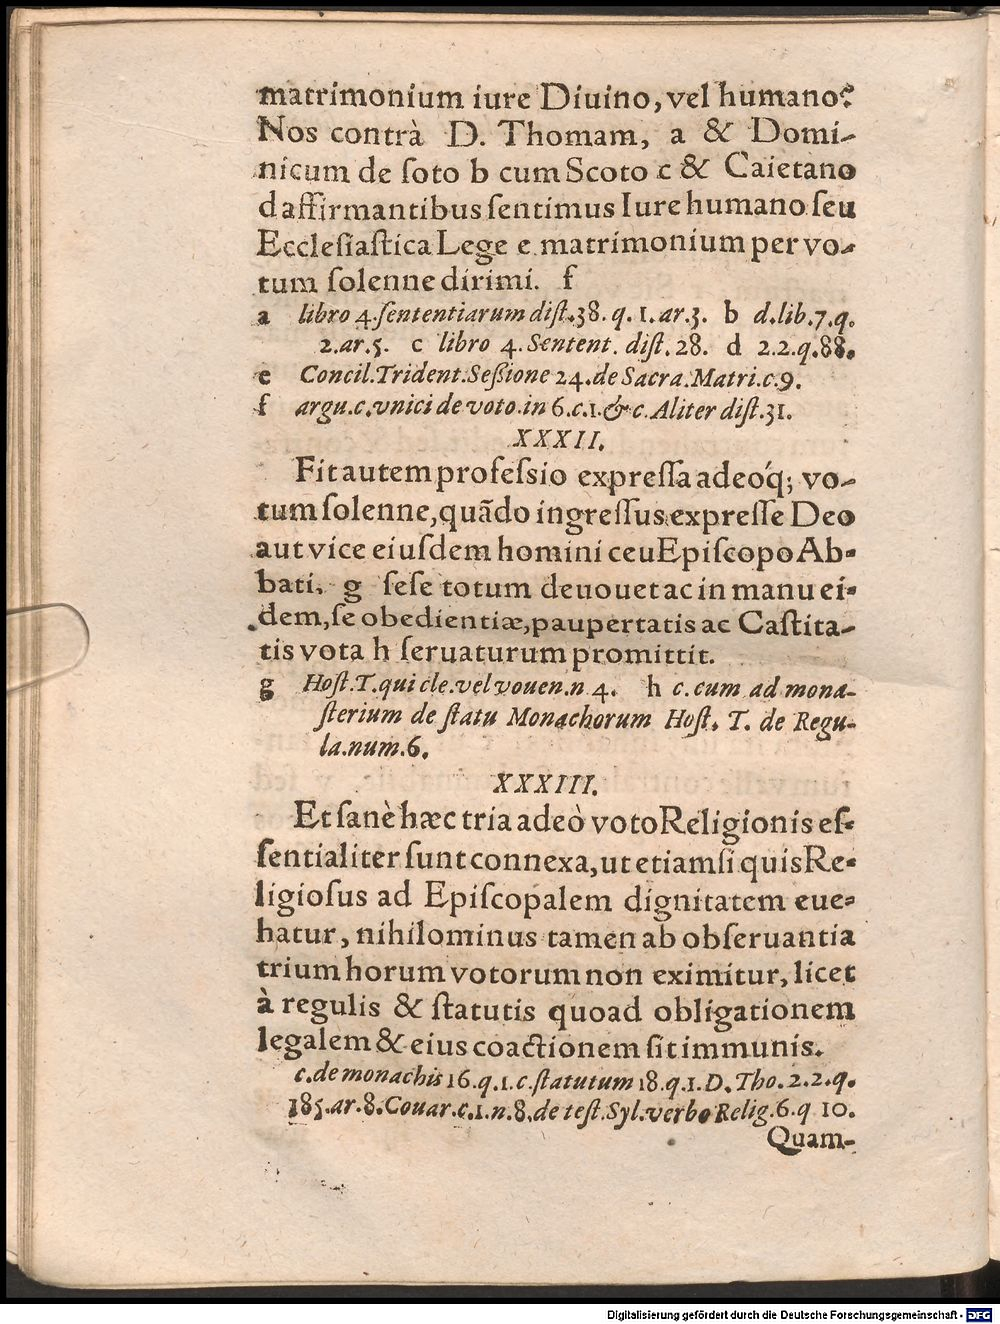 matrimonium iure Diuino, vel humano?
Nos contrà D. Thomam, a & Domi-
nicum de ſoto b cum Scoto c & Caietano
d affirmantibus ſentimus Iure humano ſeu
Eccleſiaſtica Lege e matrimonium per vo-
tum ſolenne dirimi. f
a libro 4. ſententiarum diſt. 38. q. 1. ar. 3. b d. lib. 7. q.
2. ar. 5. c libro 4. Sentent. diſt. 28. d 2. 2. q. 88.
e Concil. Trident. Seßione 24. de Sacra. Matri. c. 9.
f argu. c. vnici de voto. in 6. c. 1. & c. Aliter diſt. 31.
XXXII.
Fit autem profeſsio expreſſa adeóq; vo-
tum ſolenne, quãdo ingreſſus expreſſe Deo
aut vice eiuſdem homini ceu Epiſcopo Ab-
bati, g ſeſe totum deuouet ac in manu ei-
dem, ſe obedientiæ, paupertatis ac Caſtita-
tis vota h ſeruaturum promittit.
g Hoſt. T. qui cle. vel vouen. n 4. h c. cum ad mona-
ſterium de ſtatu Monachorum Hoſt. T. de Regu-
la. num. 6.
XXXIII.
Et ſanè hæc tria adeò voto Religionis eſ-
ſentialiter ſunt connexa, ut etiamſi quis Re-
ligioſus ad Epiſcopalem dignitatem eue-
hatur, nihilominus tamen ab obſeruantia
trium horum votorum non eximitur, licet
à regulis & ſtatutis quoad obligationem
legalem & eius coactionem ſit immunis.
c. de monachis 16. q. 1. c. ſtatutum 18. q. 1. D. Tho. 2. 2. q.
185. ar. 8. Couar. c. 1. n. 8. de teſt. Syl. verbo Relig. 6. q 10.
Quam-
Digitalisierung gefördert durch die Deutsche Forschungsgemeinschaft - DFG